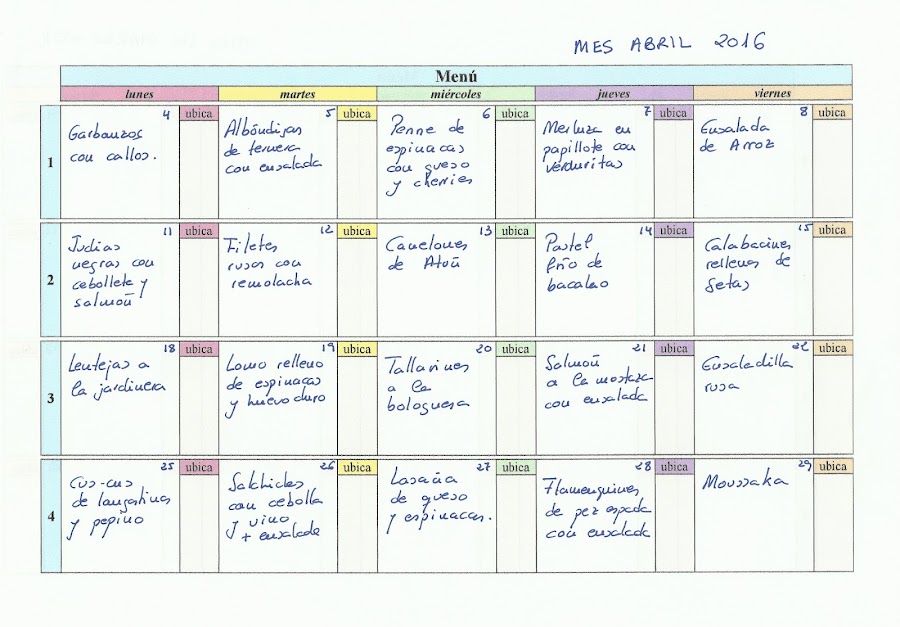 MES ABRIL 2016
Menú
lunes martes miércoles jueves viernes
1
4 ubica
Garbanzos
con callos.
5 ubica
Albóndigas
de ternera
con ensalada
6 ubica
Penne de
espinacas
con queso
y cherries
7 ubica
Merluza en
papillote con
verduritas
8 ubica
Ensalada
de Arroz
2
11 ubica
Judias
negras con
cebollete y
salmón
12 ubica
Filetes
rusos con
remolacha
13 ubica
Canelones
de Atún
14 ubica
Pastel
frío de
bacalao
15 ubica
Calabacines
rellenos de
setas
3
18 ubica
Lentejas a
la jardinera
19 ubica
Lomo relleno
de espinacas
y huevo duro
20 ubica
Tallarines
a la
bolognesa
21 ubica
Salmón
a la mostaza
con ensalada
22 ubica
Ensaladilla
rusa
4
25 ubica
Cus-cus
de langostinos
y pepino
26 ubica
Salchichas
con cebolla
y vino
+ ensalada
27 ubica
Lasaña
de queso
y espinacas.
28 ubica
Flamenquines
de pez espada
con ensalada
29 ubica
Moussaka